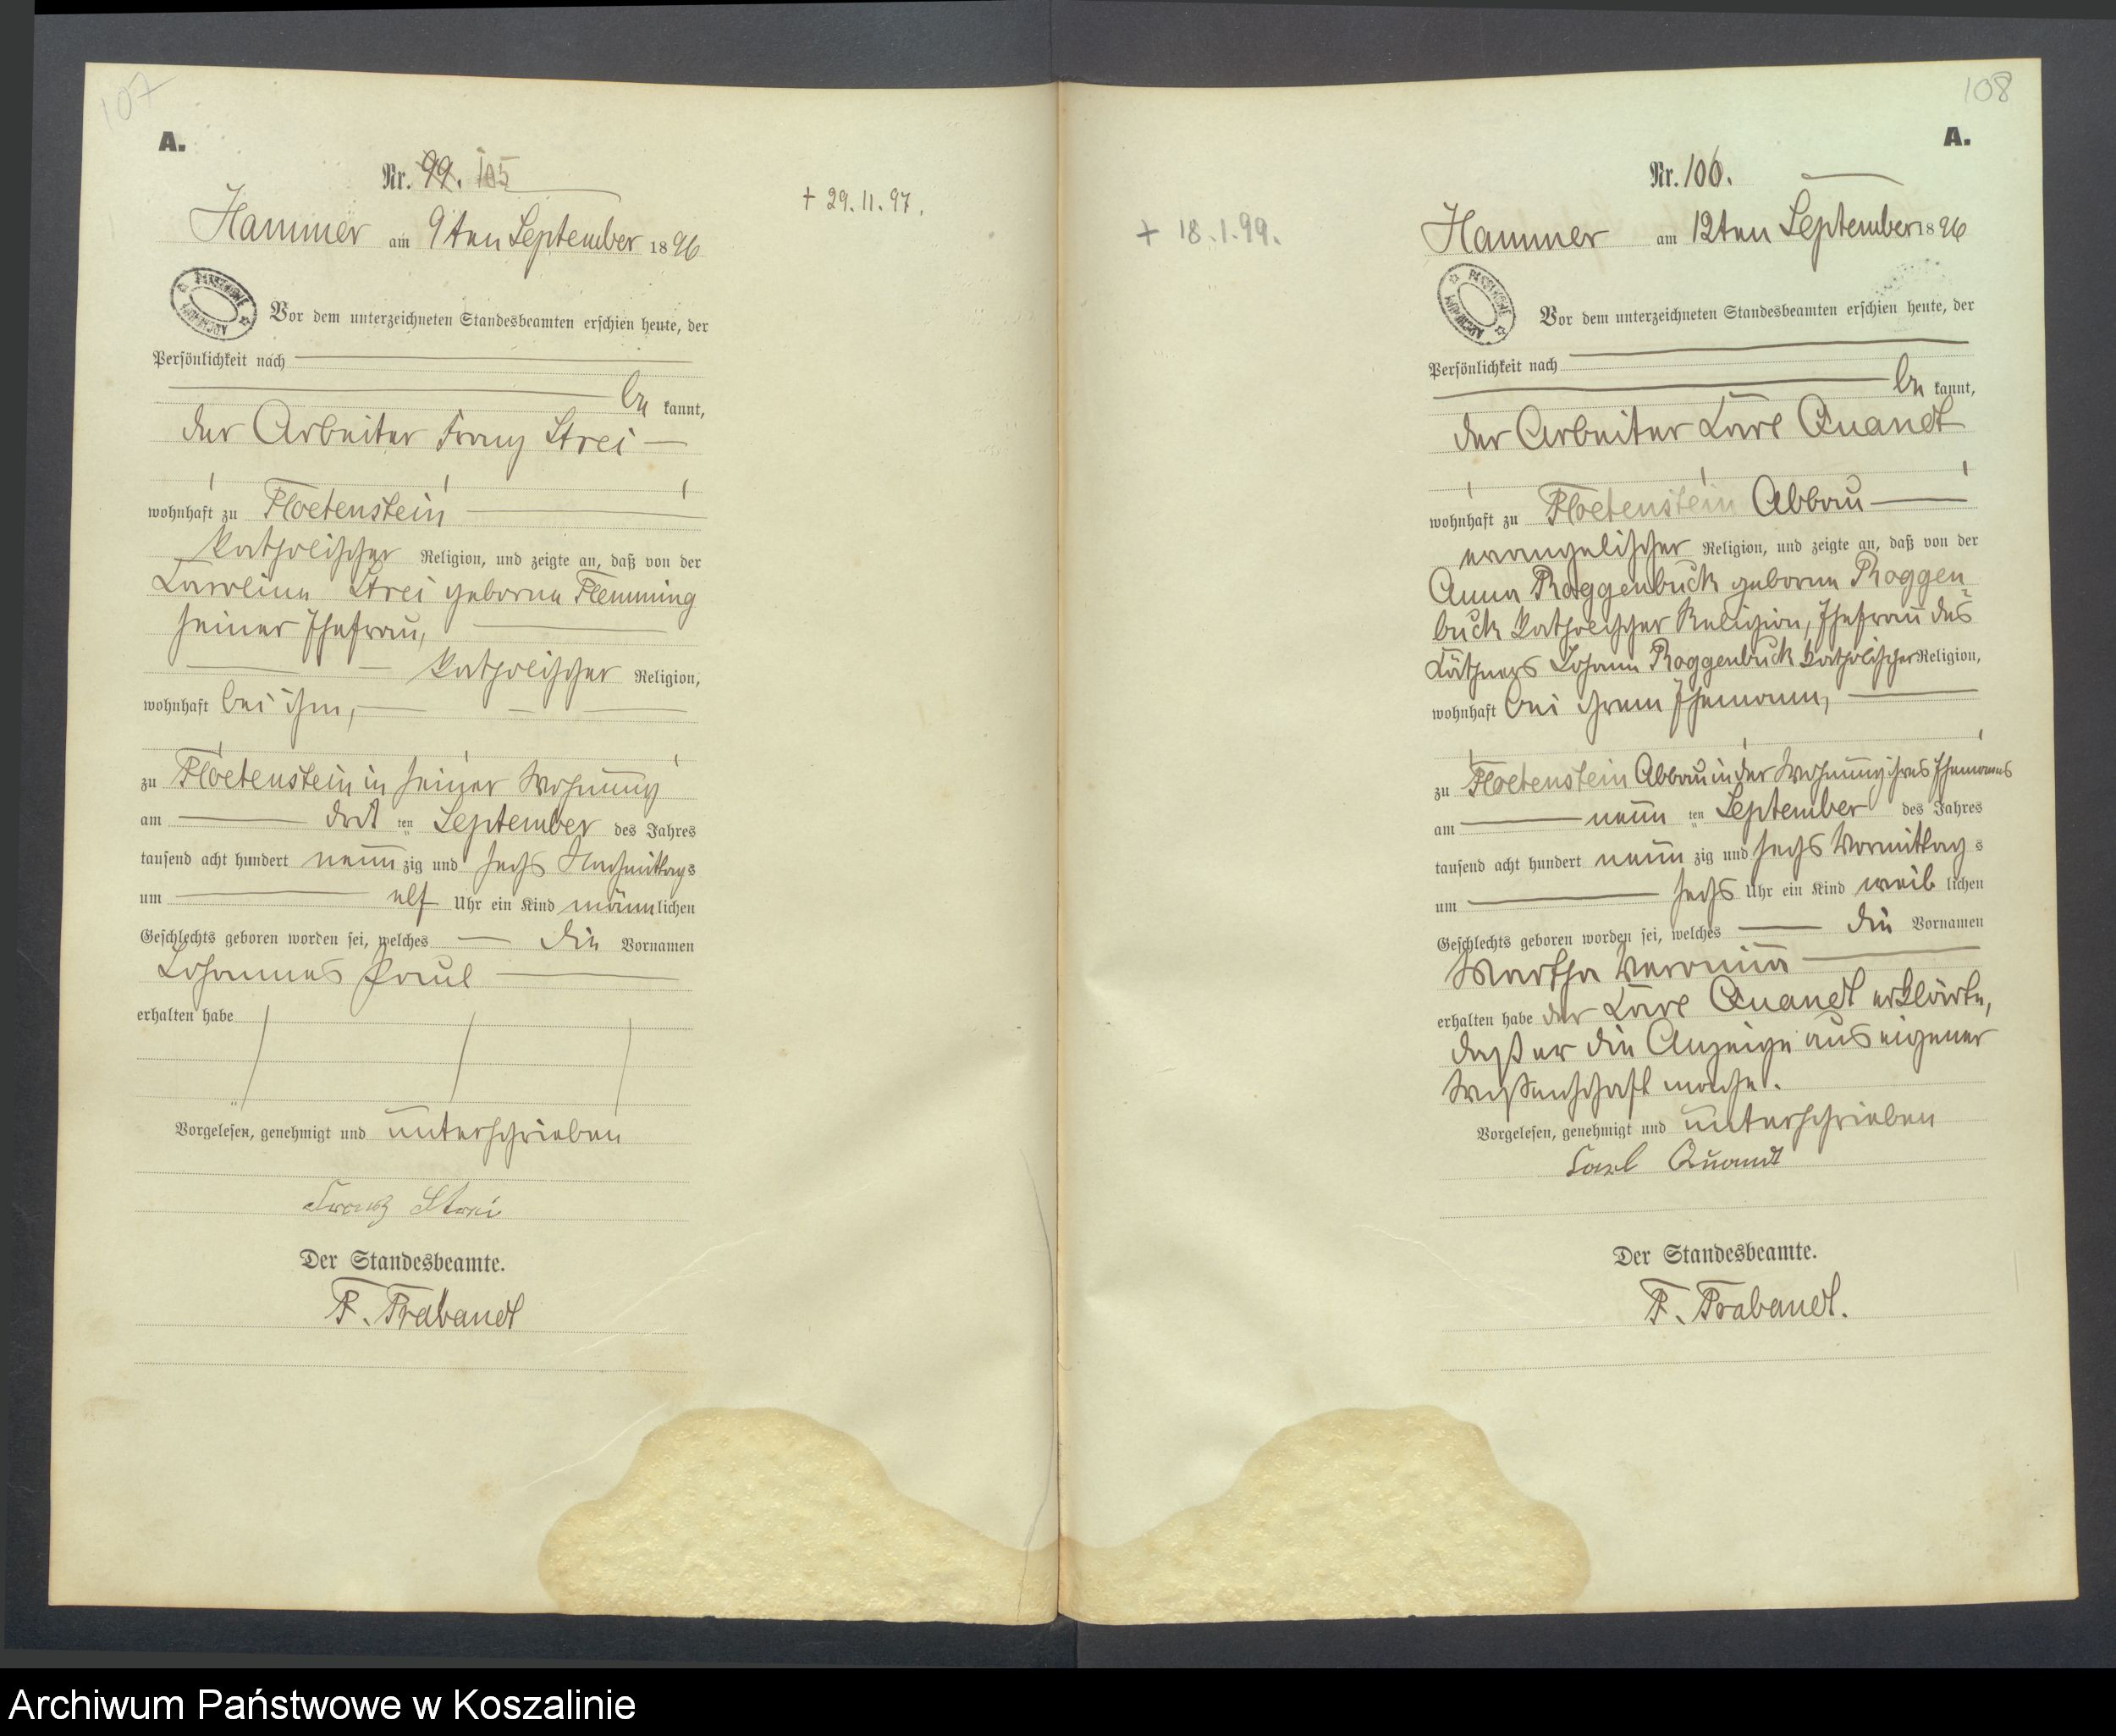 107
A.
Nr. 99. 105
+ 29.11.97.
Hammer am 9ten September 1896
Vor dem unterzeichneten Standesbeamten erschien heute, der
Persönlichkeit nach
be kannt,
der Arbeiter Franz Strei
wohnhaft zu Floetenstein
katholischer Religion, und zeigte an, daß von der
Caroline Strei geborne Flemming
seiner Ehefrau,
katholischer Religion,
wohnhaft bei ihm,
zu Floetenstein in seiner Wohnung
am drit ten September des Jahres
tausend acht hundert neun zig und sechs Nachmittags
um elf Uhr ein Kind männlichen
Geschlechts geboren worden sei, welches die Vornamen
Johannes Paul
erhalten habe
Vorgelesen, genehmigt und unterschrieben
Franz Strei
Der Standesbeamte.
F. Trabandt
108
A.
Nr. 106.
+ 18.1.99.
Hammer am 12ten September 1896
Vor dem unterzeichneten Standesbeamten erschien heute, der
Persönlichkeit nach
be kannt,
der Arbeiter Carl Quandt
wohnhaft zu Floetenstein Abbau
evangelischer Religion, und zeigte an, daß von der
Anna Roggenbuck geborne Roggen
buck katholischer Religion, Ehefrau des
Käthners Johann Roggenbuck katholischer Religion,
wohnhaft bei ihrem Ehemann,
zu Floetenstein Abbau in der Wohnung ihres Ehemannes
am neun ten September des Jahres
tausend acht hundert neun zig und sechs Vormittag s
um sechs Uhr ein Kind weib lichen
Geschlechts geboren worden sei, welches die Vornamen
Martha Veronika
erhalten habe der Carl Quandt erklärte,
daß er die Anzeige aus eigener
Wissenschaft mache.
Vorgelesen, genehmigt und unterschrieben
Carl Quandt
Der Standesbeamte.
F. Trabandt.
Archiwum Państwowe w Koszalinie